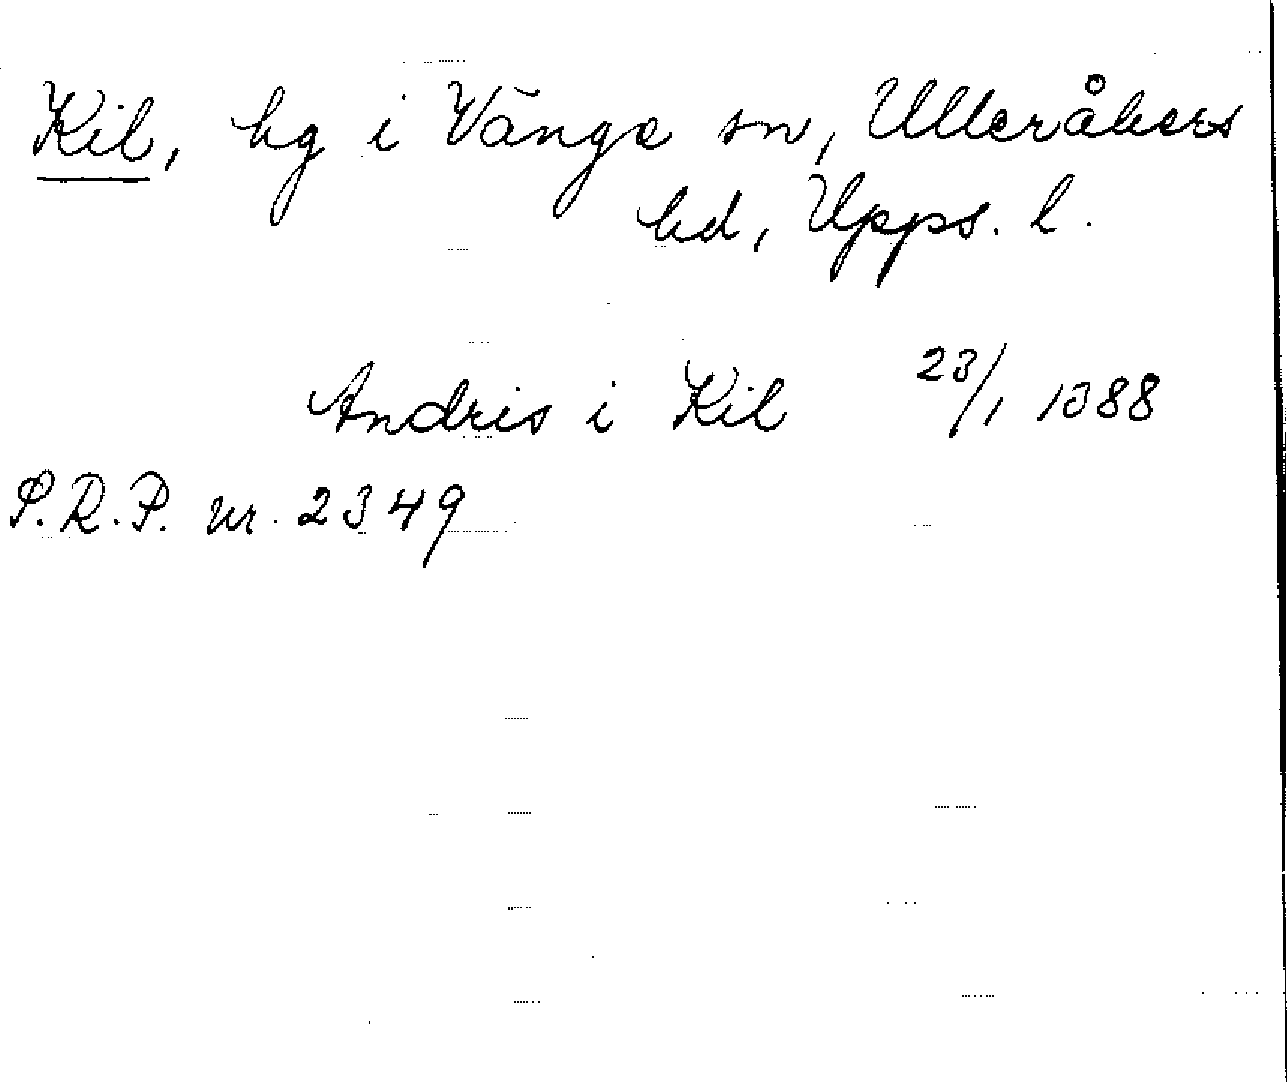 Kil, hg i Vänge sn, Ulleråkers
hd, Upps. l.
Andris i Kil 23/1 1388
S.R.P. nr. 2349